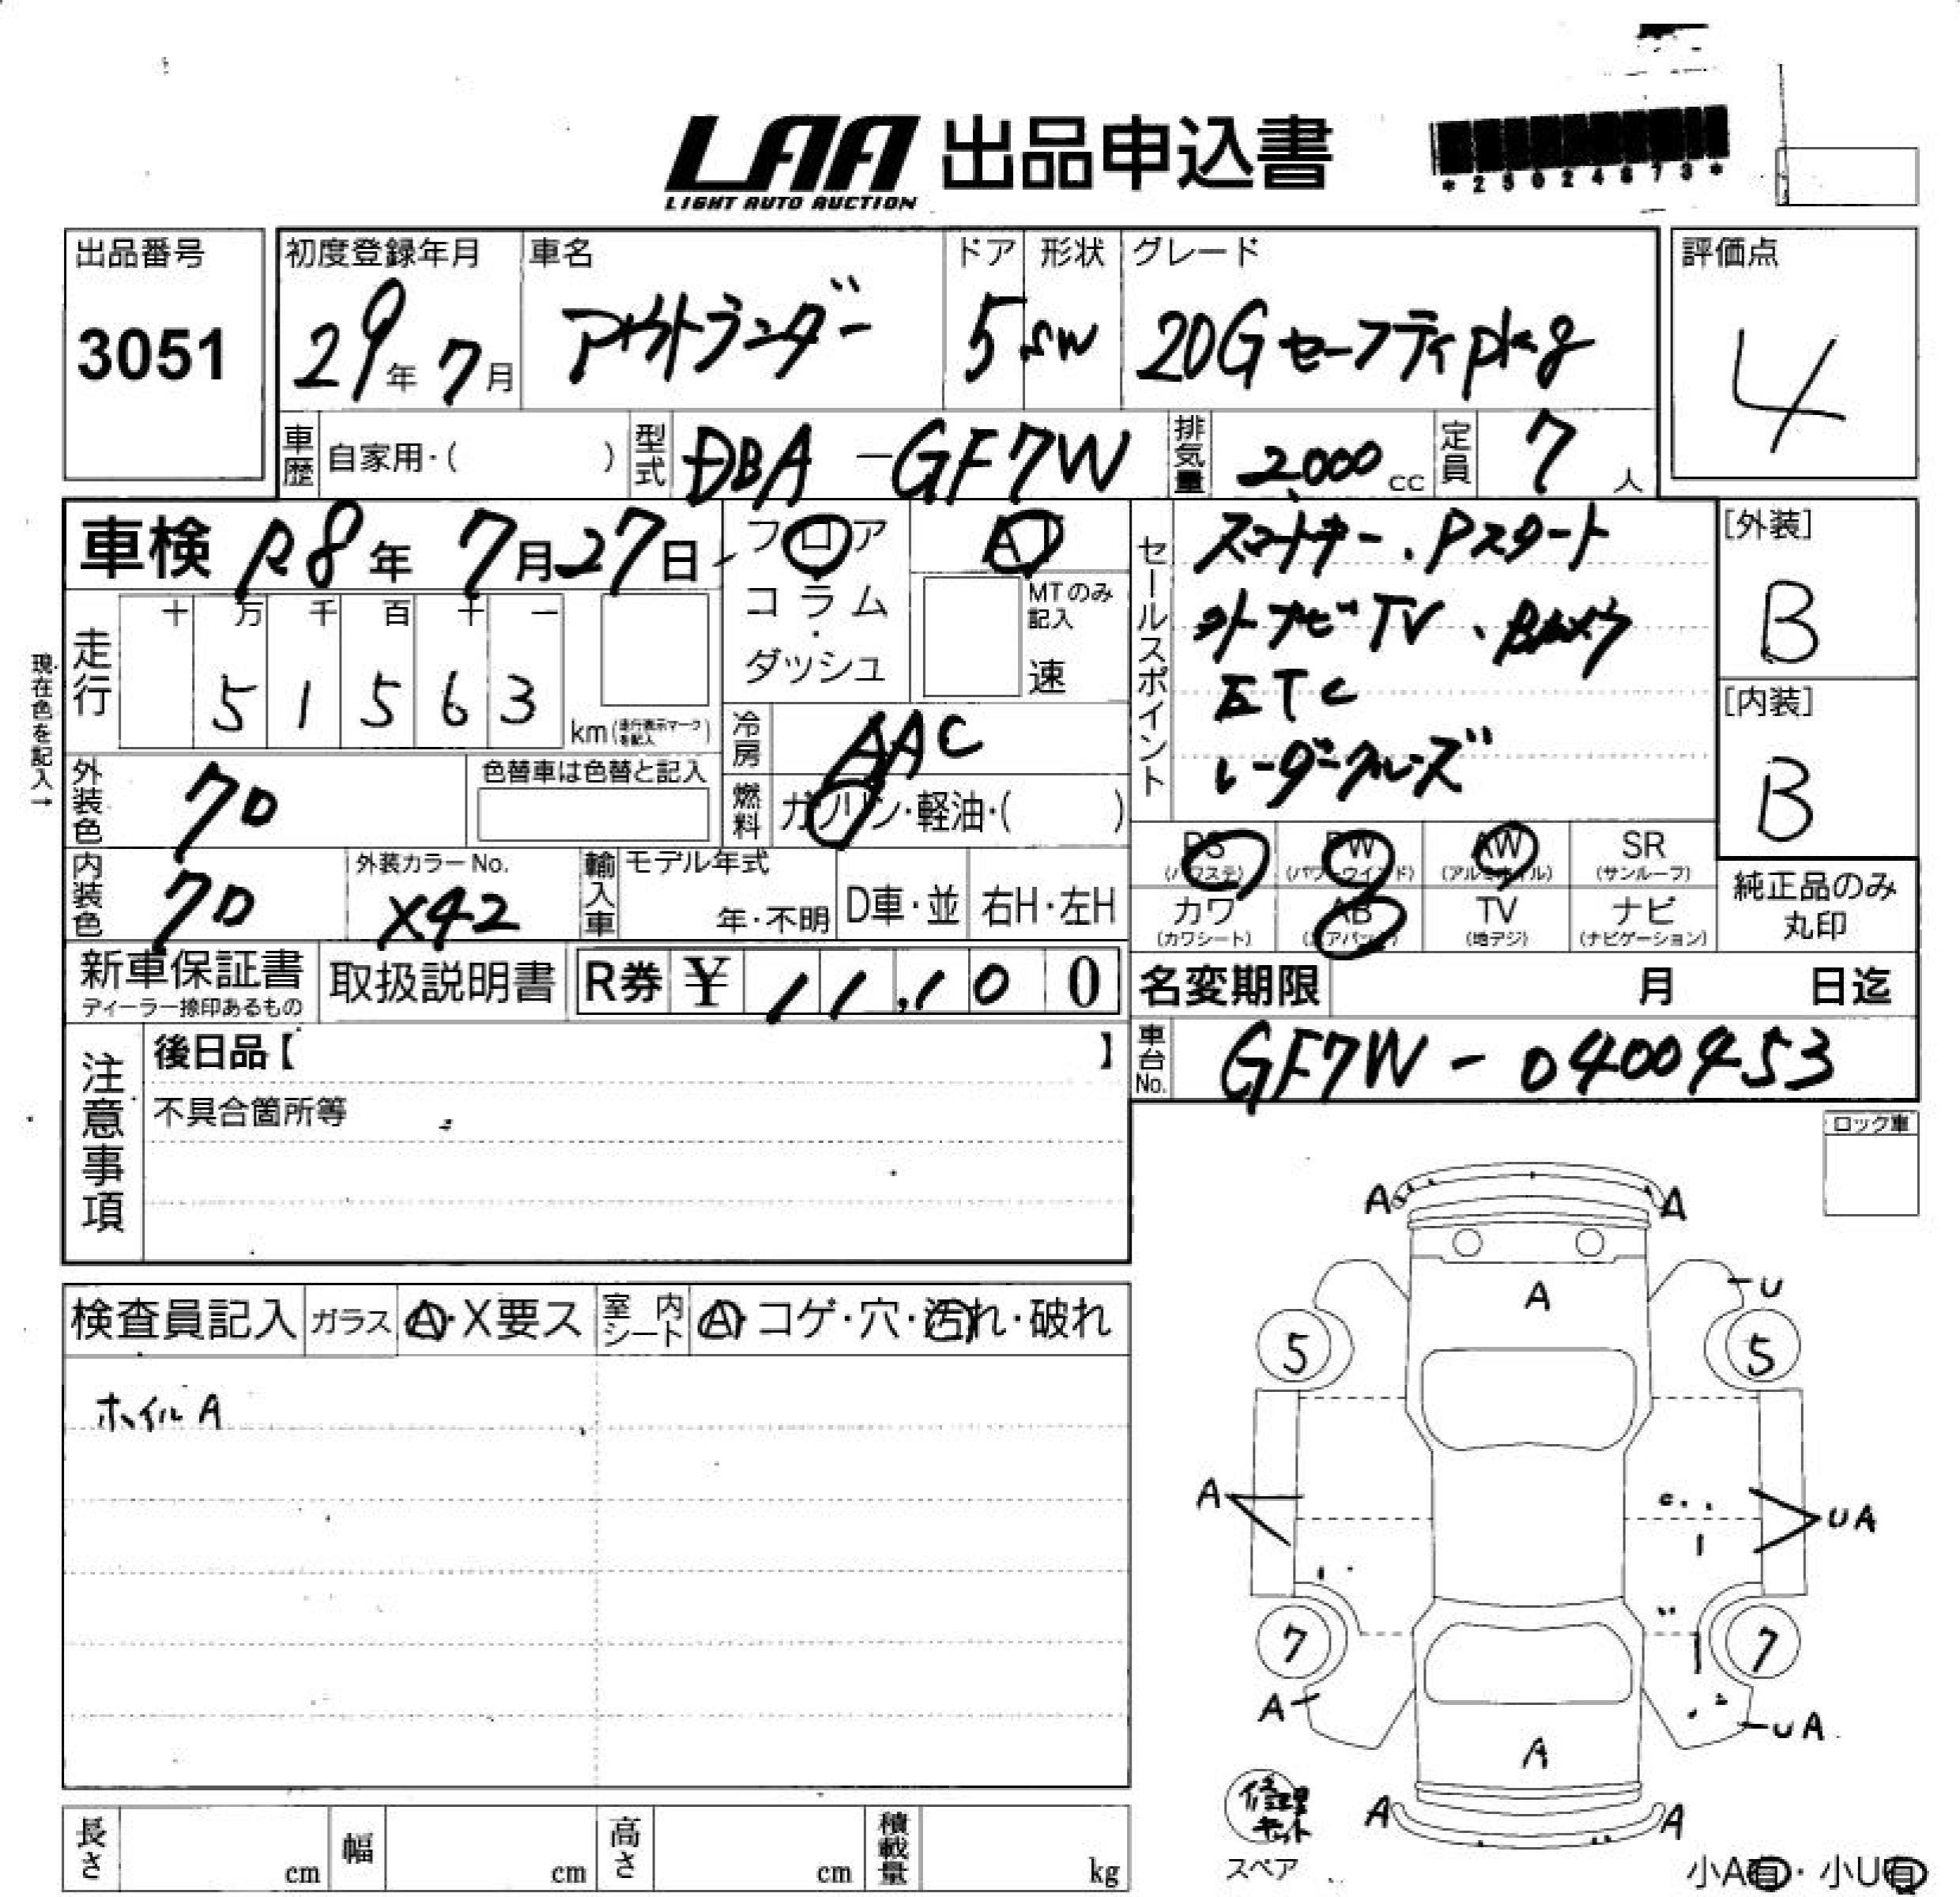 LAA 出品申込書
LIGHT AUTO AUCTION
出品番号
3051
初度登録年月
29年 7月
車名
アウトランダー
ドア
5
形状
SW
グレード
20G セーフティpkg
評価点
4
車歴 自家用・( )
型式 DBA-GF7W
排気量 2,000 cc
定員 7人
車検 R8年 7月27日
フロア
コラム
・
ダッシュ
AT
MTのみ記入
速
走行
十 万 千 百 十 一
5 1 5 6 3
km(走行表示マークを記入)
現在色を記入→
外装色 クロ
色替車は色替と記入
冷房 AAC
燃料 ガソリン・軽油・( )
内装色 クロ
外装カラーNo.
X42
輸入車
モデル年式
年・不明
D車・並
右H・左H
新車保証書
ディーラー捺印あるもの
取扱説明書
R券 ¥ 11,100
セールスポイント
スマートキー、Pスタート
ナビTV、Bカメラ
ETC
レーダークルーズ
[外装]
B
[内装]
B
PS
(パワステ)
PW
(パワーウインド)
AW
(アルミホイル)
SR
(サンルーフ)
カワ
(カワシート)
AB
(エアバック)
TV
(地デジ)
ナビ
(ナビゲーション)
純正品のみ
丸印
名変期限 月 日迄
車台No. GF7W-0400453
注意事項
後日品【 】
不具合箇所等
ロック車
検査員記入
ガラス A・X要ス
室内シート A・コゲ・穴・汚れ・破れ
ホイルA
A A
A
U
5 5
A
UA
7 7
A
UA
A
A A
修理キット
スペア
小A有・小U有
長さ cm
幅 cm
高さ cm
積載量 kg